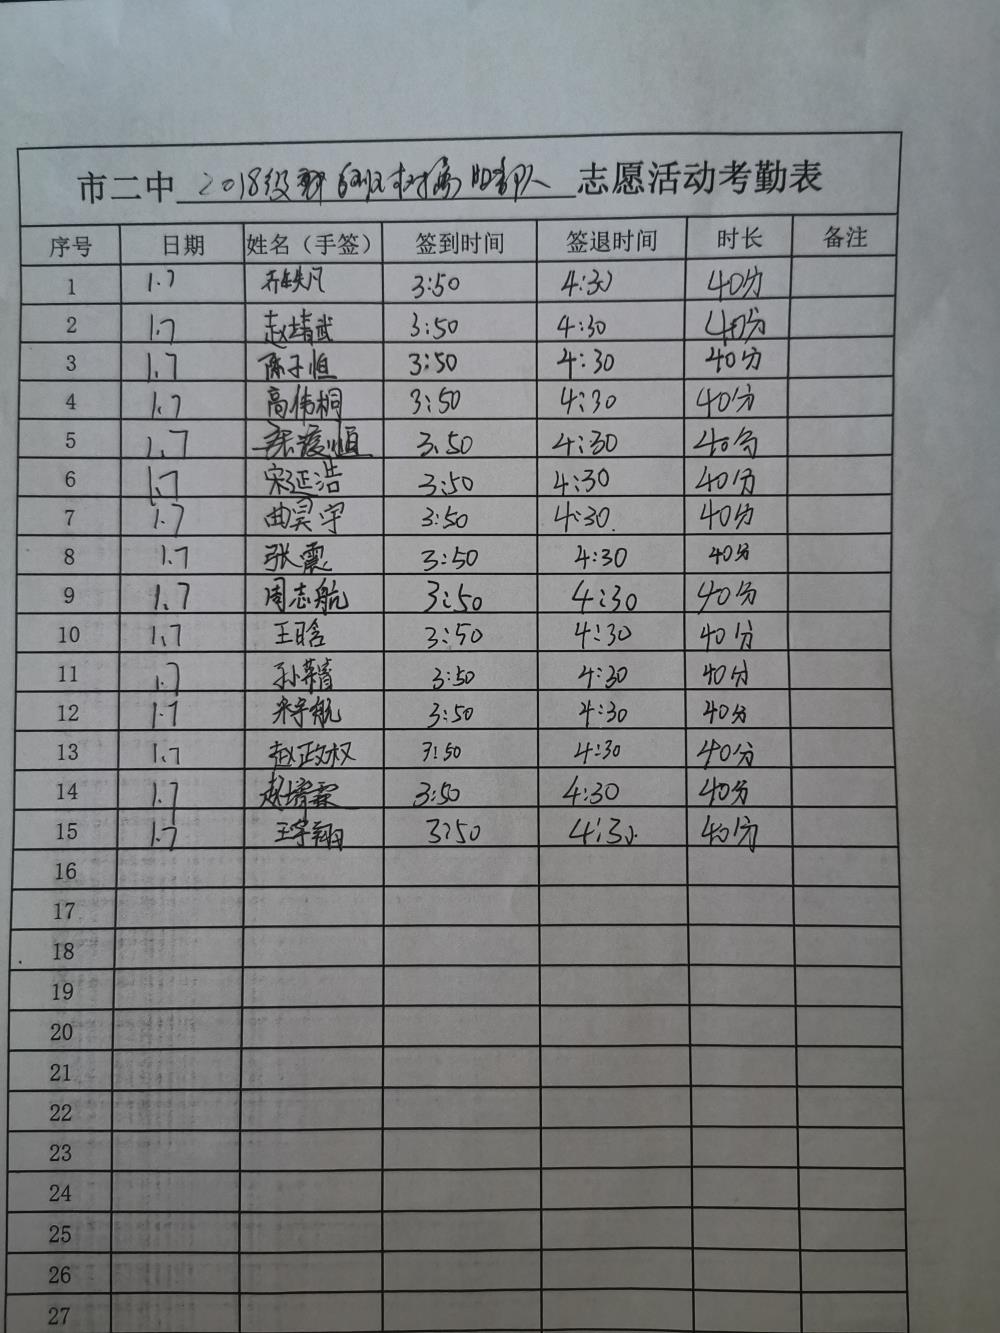 市二中 2018级 志愿活动考勤表
序号 日期 姓名（手签） 签到时间 签退时间 时长 备注
1 1.7 3:50 4:30 40分
2 1.7 赵靖武 3:50 4:30 40分
3 1.7 陈子恒 3:50 4:30 40分
4 1.7 高伟桐 3:50 4:30 40分
5 1.7 3:50 4:30 40分
6 1.7 宋延浩 3:50 4:30 40分
7 1.7 曲昊宇 3:50 4:30 40分
8 1.7 张震 3:50 4:30 40分
9 1.7 周志航 3:50 4:30 40分
10 1.7 王晗 3:50 4:30 40分
11 1.7 3:50 4:30 40分
12 1.7 3:50 4:30 40分
13 1.7 赵政权 3:50 4:30 40分
14 1.7 3:50 4:30 40分
15 1.7 王宇翔 3:50 4:30 40分
16
17
18
19
20
21
22
23
24
25
26
27